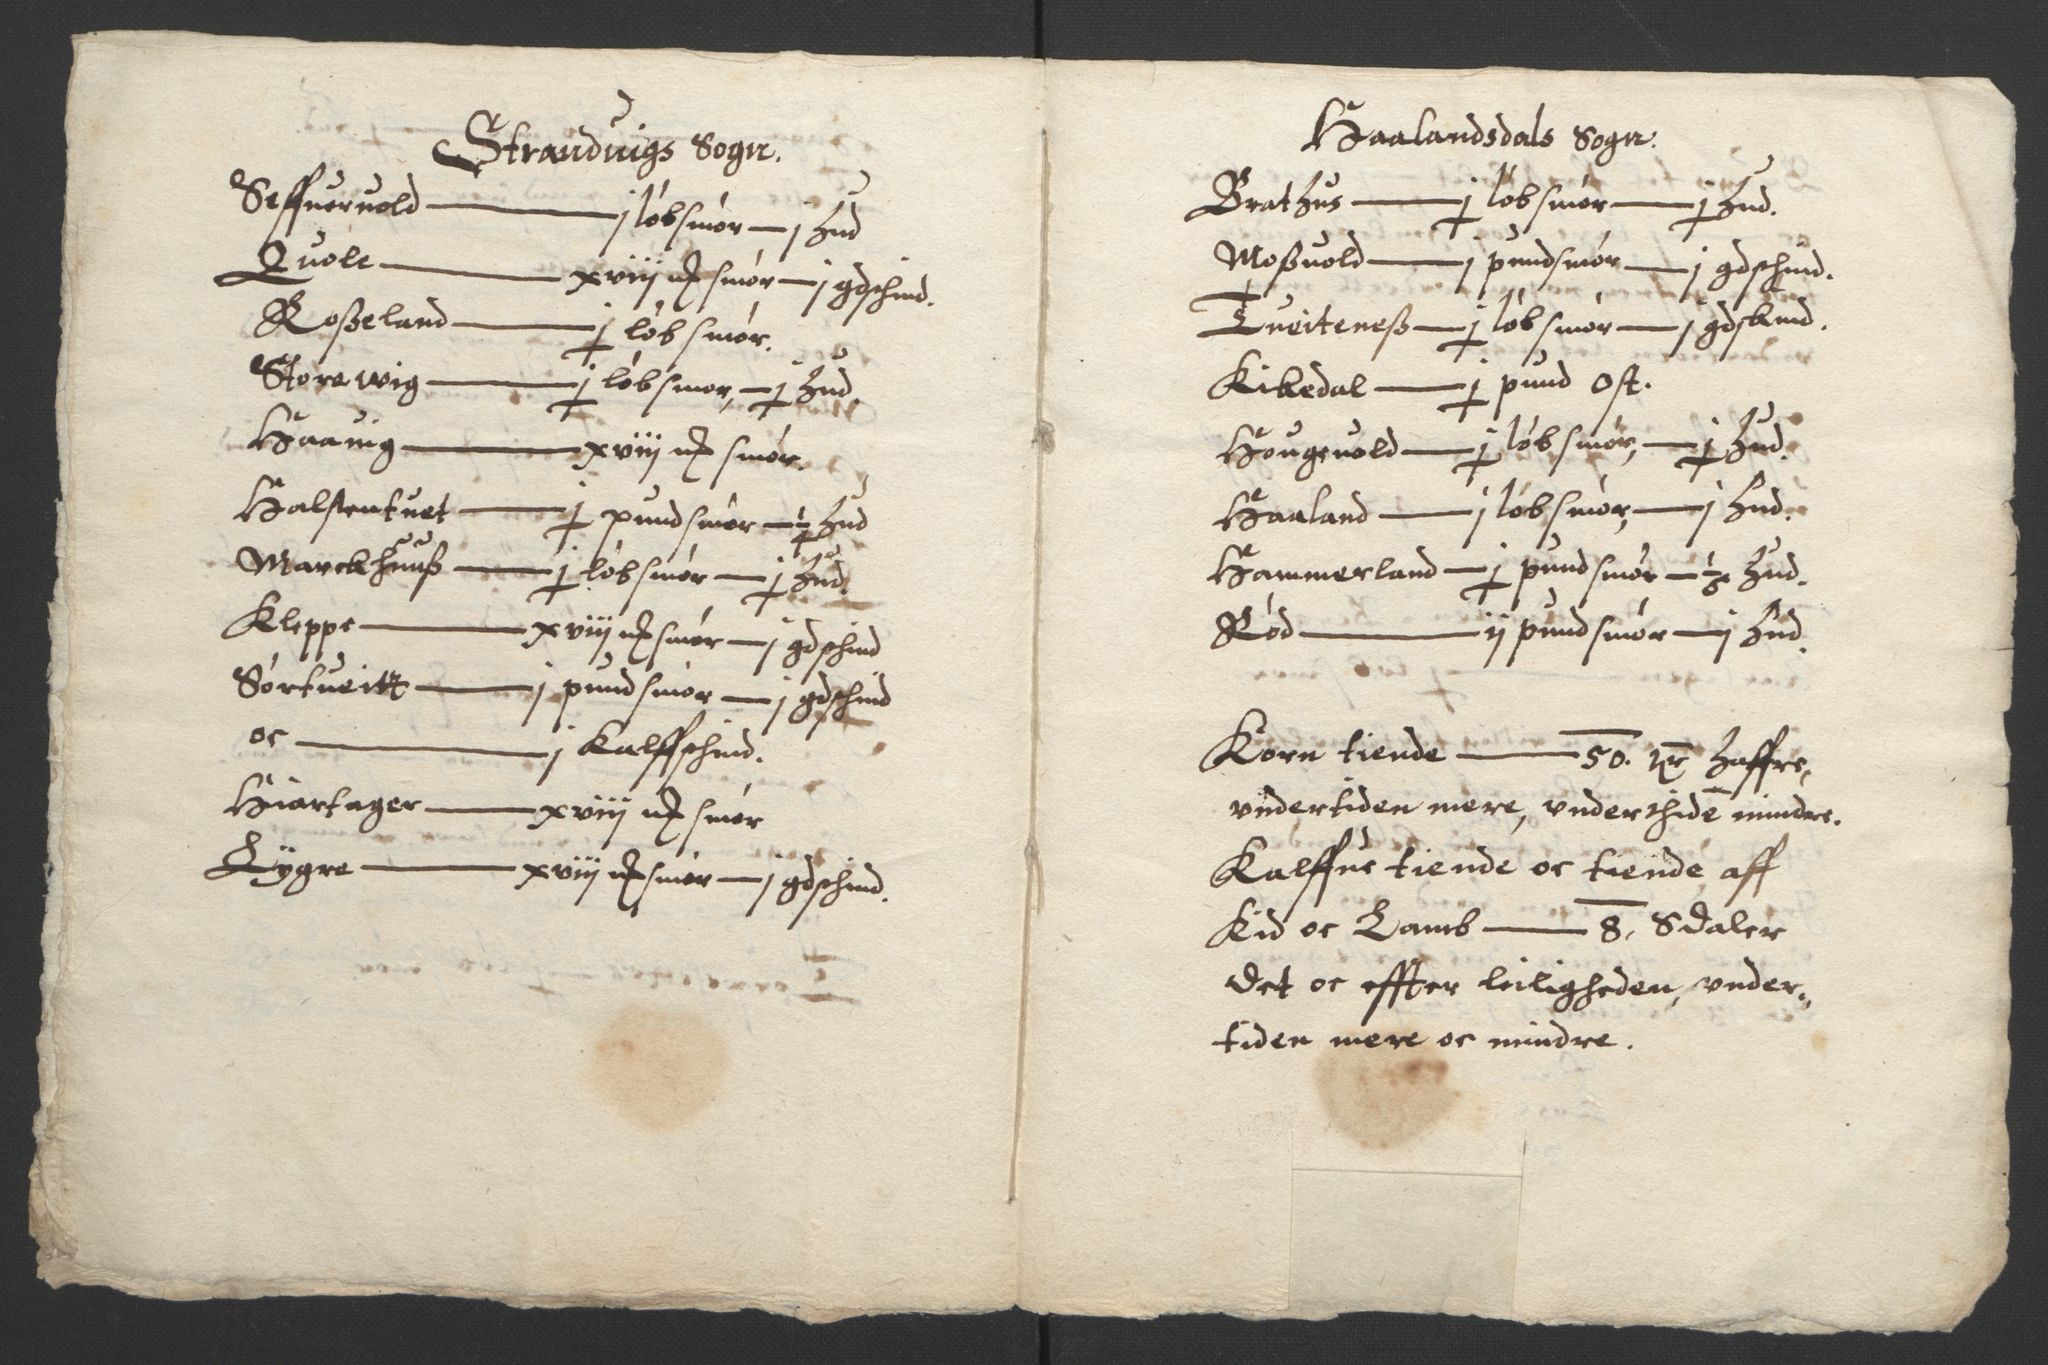 Strandwigs Sogn.
Seffueruold — j løbsmør — j hud
Quole — xviij mk smør — j gdschind.
Roßeland — ɉ løb smør.
Storewig — ɉ løbsmør, — ɉ hud.
Haawig — xviij mk smør.
Halstentuet — ɉ pundsmør — ¼ hud
Marckhuuß — ɉ løbsmør — ɉ hud.
Kleppe — xviij mk smør — j gdschind
Sørtueitt — j pundsmør — j gdschind
oc — j Kalffschind.
Hiartager — xviij mk smør
Lygre — xviij mk smør — j gdschind.
Haalandsdals Sogn.
Brathus — ɉ løbsmør — ɉ hud.
Moßuold — j pundsmør — j gdschind.
Tueiteneß — ɉ løbsmør — j gdskind.
Kikedal — ɉ pund Ost.
Hougeuold — ɉ løbsmør, — ɉ hud.
Haaland — j løbsmør, — j hud.
Hammerland — ɉ pundsmør — ⅛ hud.
Rød — ij pundsmør — j hud.
Korn tiende — 50. haffre,
vndertiden mere, vnderthidē mindre.
Kalffue tiende oc tiende aff
Kid oc Lamb — 8. Sdaler
det oc effter leiligheden, vnder-
tiden mere oc mindre.